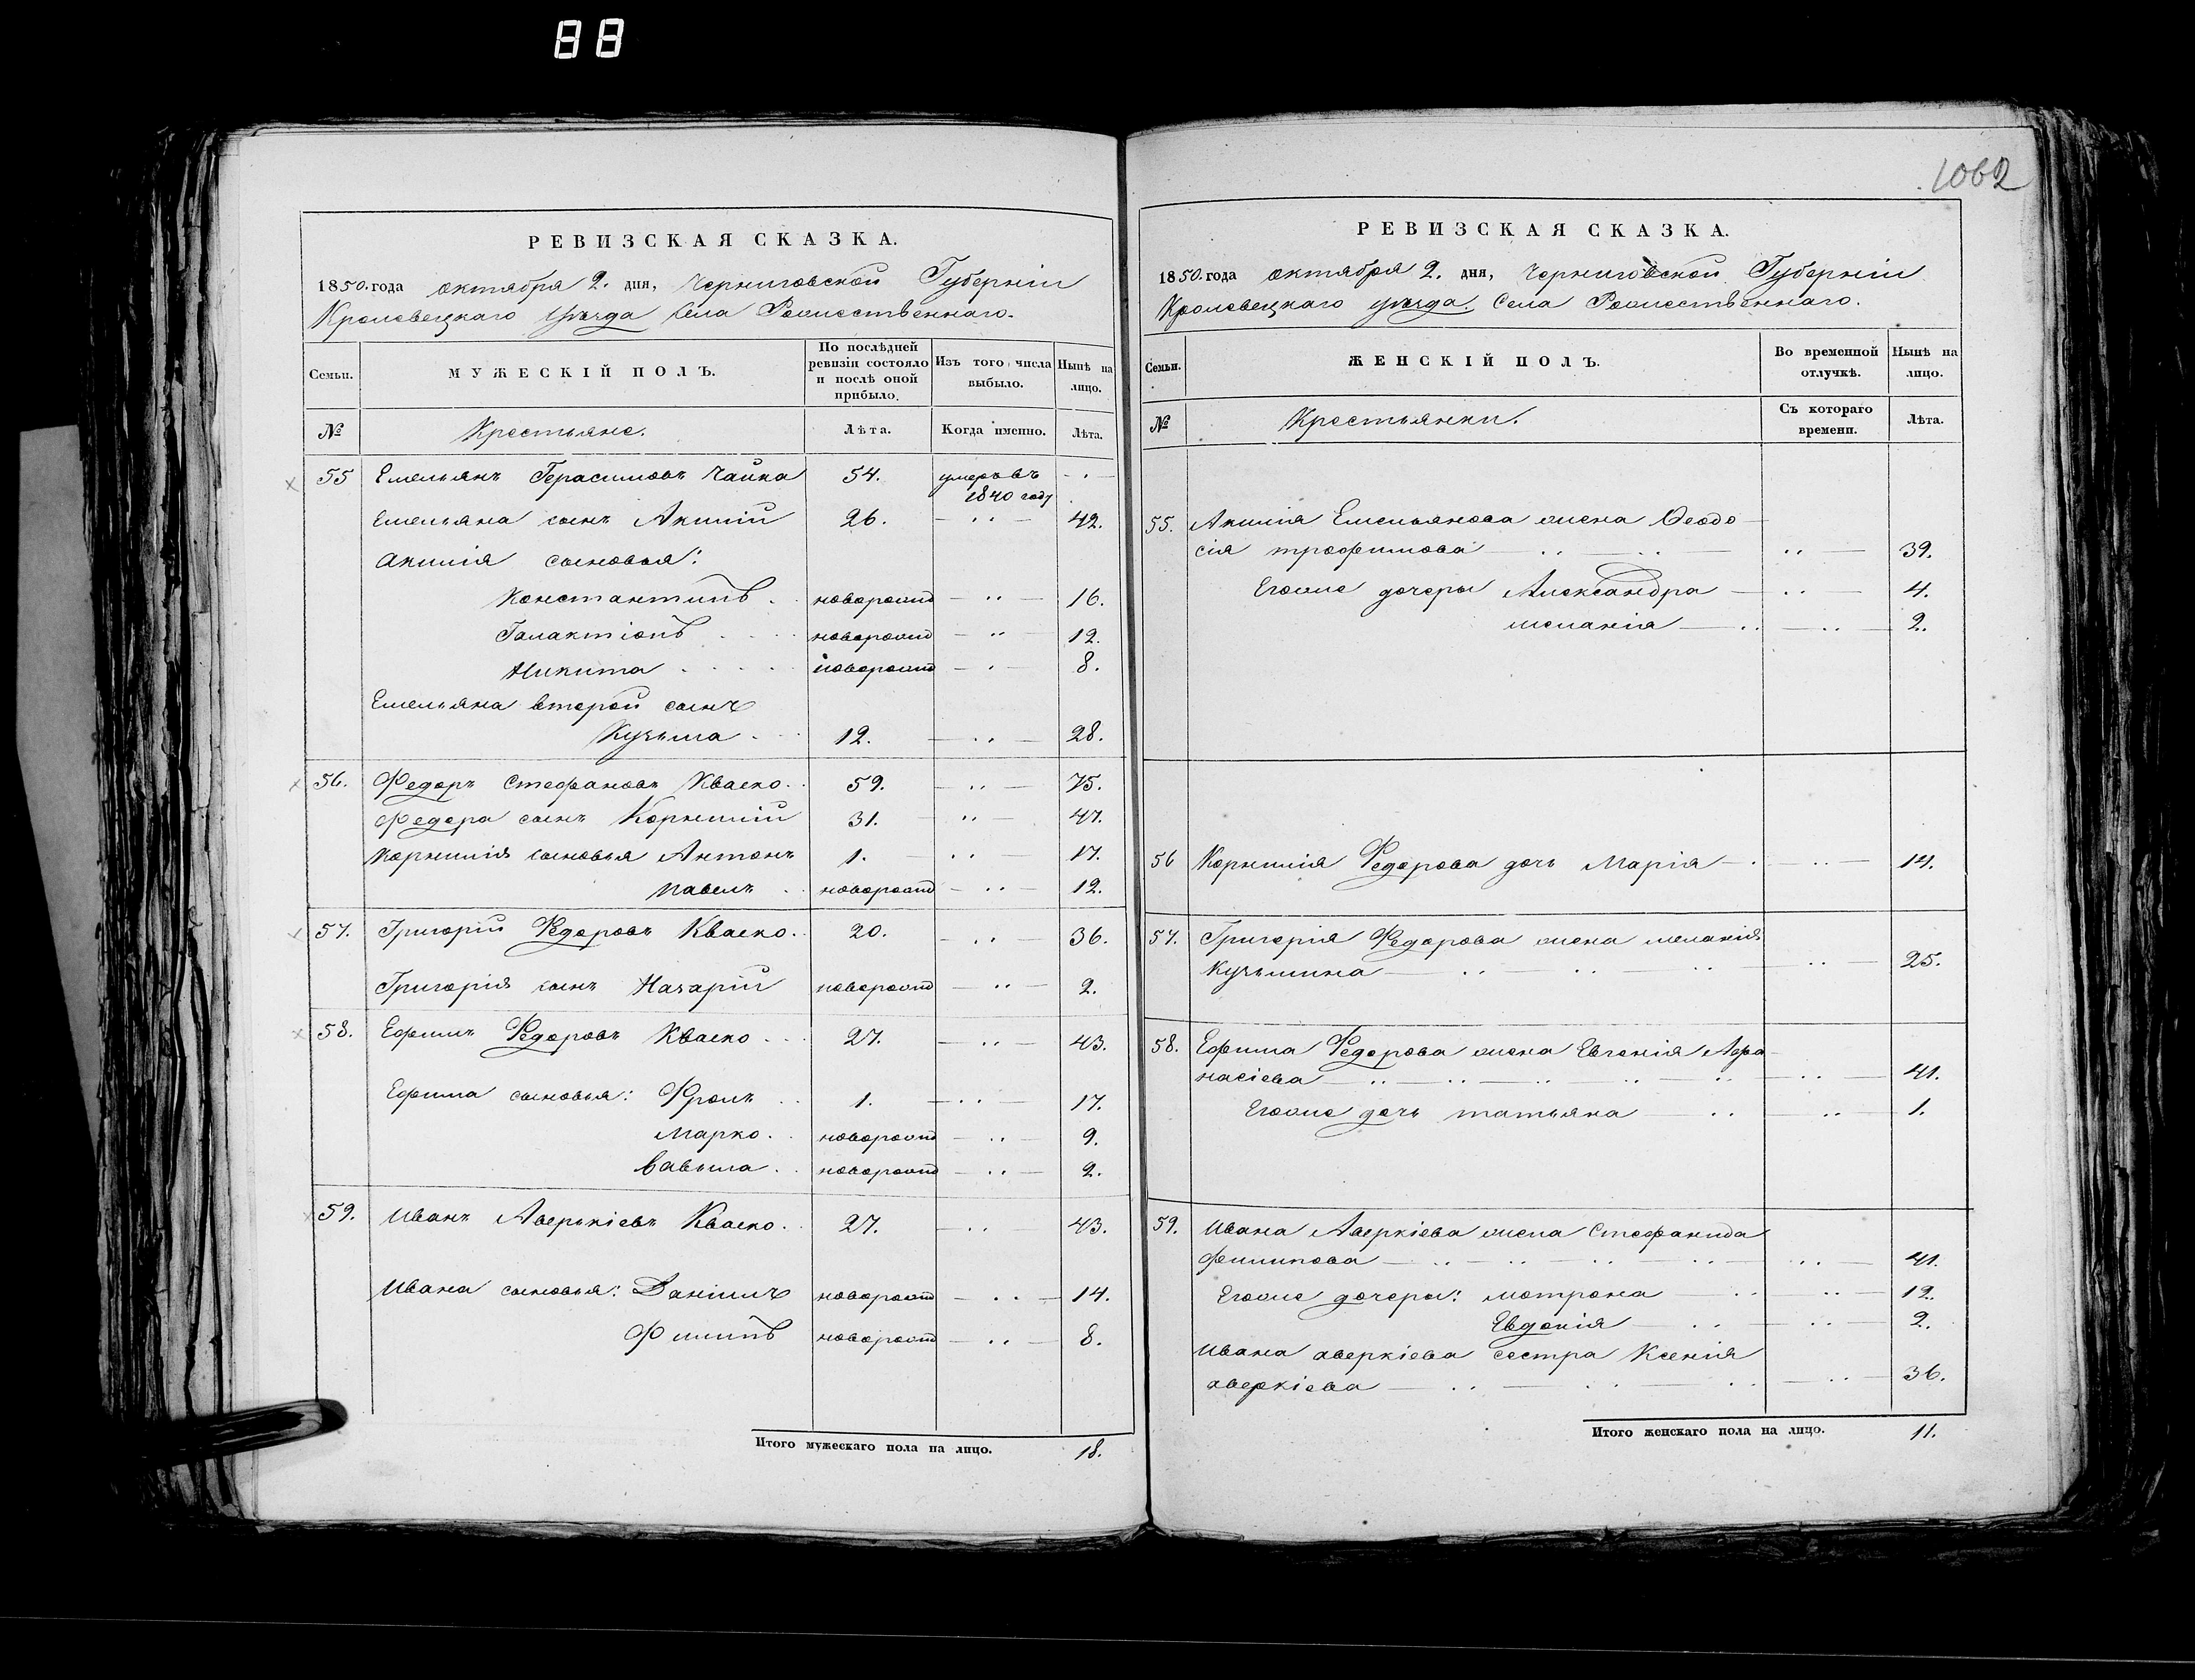 88
1062
РЕВИЗСКАЯ СКАЗКА.
1850. года октября 2. дня, Черниговской Губерніи
Кролевецкаго уѣзда села Рожественнаго.
Семьи. МУЖЕСКІЙ ПОЛЪ. По послѣдней ревизіи состояло и послѣ оной прибыло. Изъ того числа выбыло. Нынѣ на лицо.
№ Крестьяне. Лѣта. Когда именно. Лѣта.
55 Емельянъ Герасимовъ Чайка 54. умеръ въ
1840 году
Емельяна сынъ Акилій 26. 42.
Акилія сыновья:
Константинъ новорожд 16.
Галактіонъ новорожд 12.
Никита новорожд 8.
Емельяна второй сынъ
Кузьма 12. 28.
56. Федоръ Стефановъ Кваско 59. 75.
Федора сынъ Корнилій 31. 47.
Корнилія сыновья Антонъ 1. 17.
Павелъ новорожд 12.
57. Григорій Федоровъ Кваско 20. 36.
Григорія сынъ Назарій новорожд 2.
58. Ефимъ Федоровъ Кваско 27. 43.
Ефима сыновья: Фролъ 1. 17.
Марко новорожд 9.
Вавила новорожд 2.
59. Иванъ Аверькіевъ Кваско 27. 43.
Ивана сыновья: Даніилъ новорожд 14.
Филипъ новорожд 8.
Итого мужескаго пола на лицо. 18.
РЕВИЗСКАЯ СКАЗКА.
1850. года октября 2. дня, Черниговской Губерніи
Кролевецкаго уѣзда. Села Рожественнаго.
Семьи. ЖЕНСКІЙ ПОЛЪ. Во временной отлучкѣ. Нынѣ на лицо.
№ Крестьянки. Съ котораго времени. Лѣта.
55. Акилія Емельянова жена Ѳеодо
сія трофимова 39.
Егоже дочери Александра 4.
меланія 2.
56 Корнилія Федорова дочь Марія 14.
57. Григорія Федорова жена меланія
Кузьмина 25.
58. Ефима Федорова жена Евгенія Афа
насіева 41.
Егоже дочь татьяна 1.
59. Ивана Аверкіева жена Стефанида
филипова 41.
Егоже дочери: мотрона 12.
Евдокія 2.
Ивана аверкіева сестра Ксенія
аверкіева 36.
Итого женскаго пола на лицо. 11.